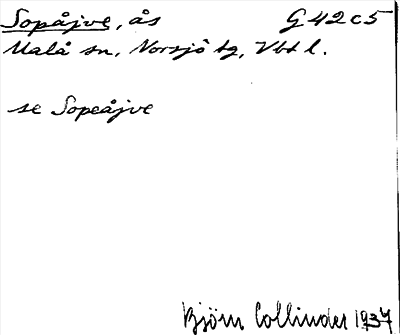 Sopåjve, ås G 42 c 5
Malå sn, Norsjö tg, Vbt l.
se Sopeåjve
Björn Collinder 1937